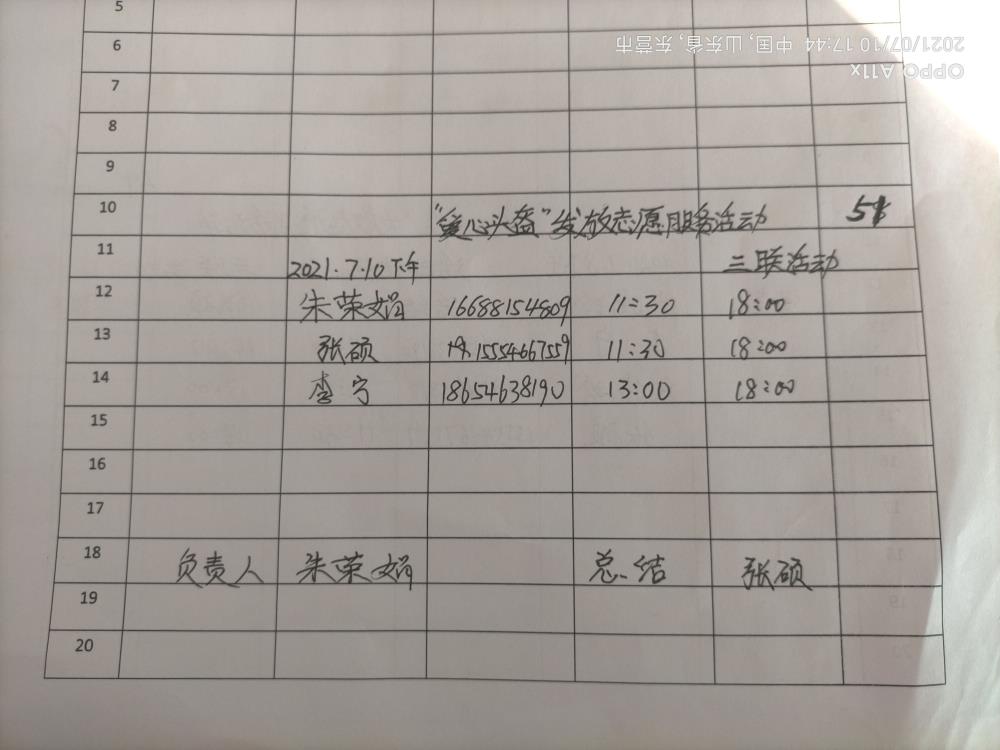 OPPO A11x
2021/07/10 17:44 中国, 山东省, 东营市
5
6
7
8
9
10 "爱心头盔"发放志愿服务活动
11 2021.7.10下午 三联活动
12 朱荣娟 16688154809 11:30 18:00
13 张硕 15554667559 11:30 18:00
14 李宁 18654638190 13:00 18:00
15
16
17
18 负责人 朱荣娟 总结 张硕
19
20